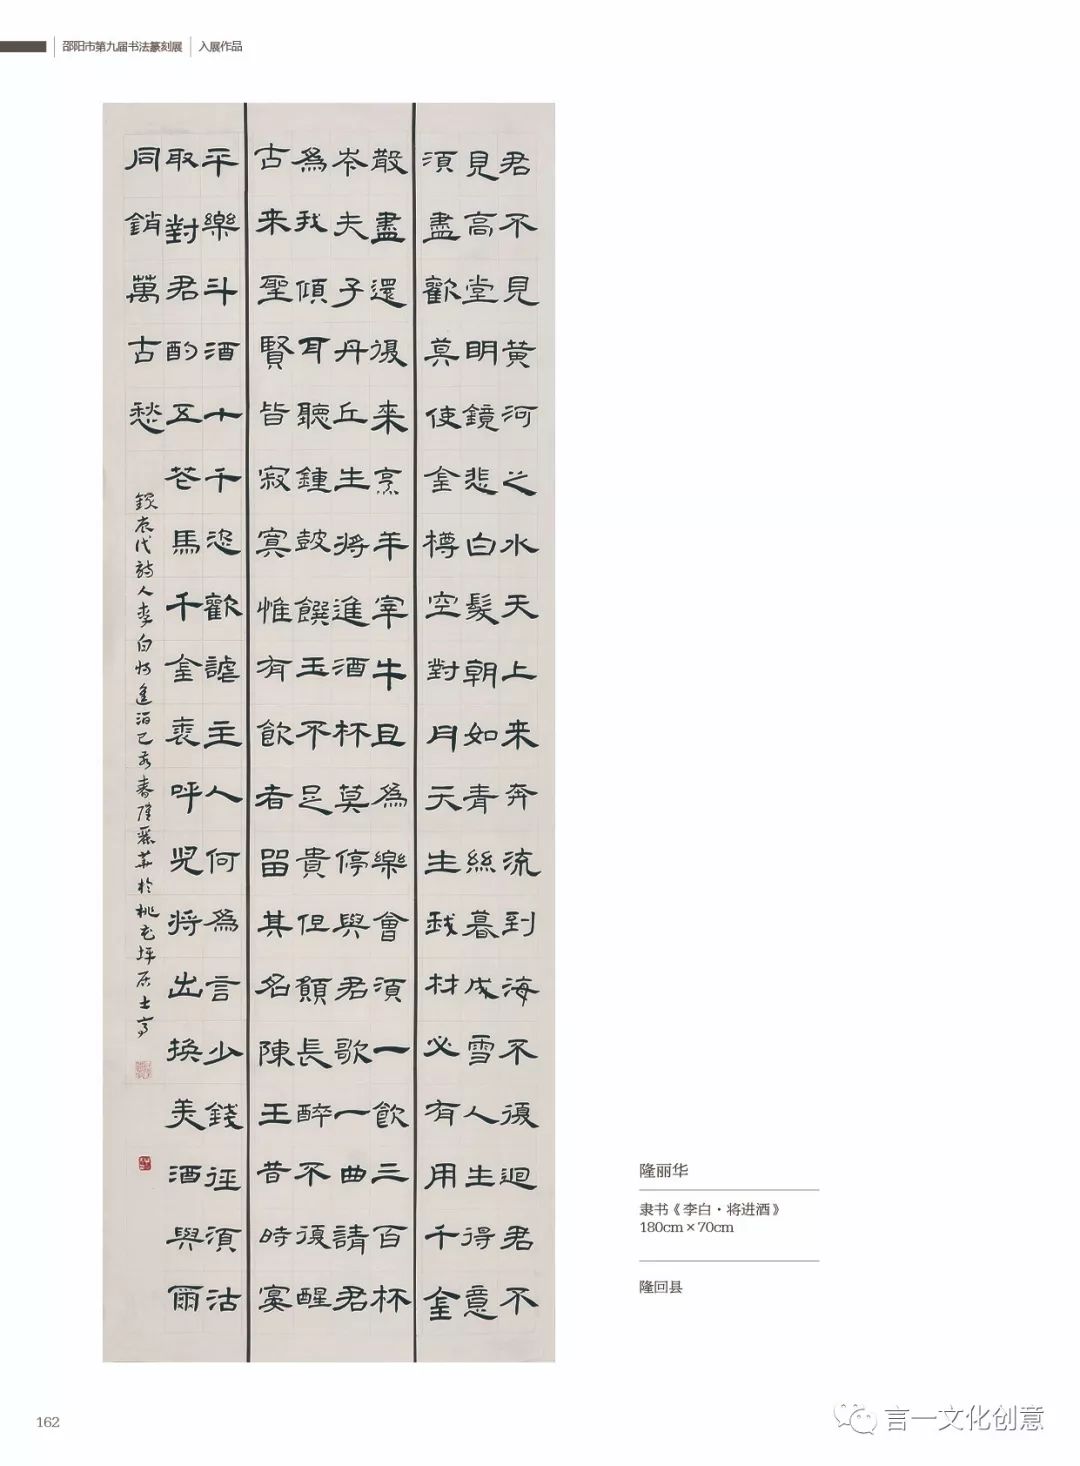 邵阳市第九届书法篆刻展 入展作品
君不見黄河之水天上来奔流到海不復迴君不
見高堂明鏡悲白髮朝如青絲暮成雪人生得意
須盡歡莫使金樽空對月天生我材必有用千金
散盡還復来烹羊宰牛且為樂會須一飲三百杯
岑夫子丹丘生将進酒杯莫停與君歌一曲請君
為我傾耳聽鍾鼓饌玉不足貴但願長醉不復醒
古来聖賢皆寂寞惟有飲者留其名陳王昔時宴
平樂斗酒十千恣歡謔主人何為言少錢径須沽
取對君酌五花馬千金裘呼兒将出換美酒與爾
同銷萬古愁
錄唐代詩人李白将進酒己亥春隆麗華於桃花坪居士
隆丽华
隶书《李白·将进酒》
180cm×70cm
隆回县
162
言一文化创意